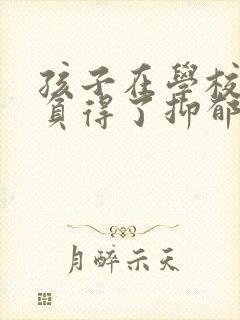 孩子在學校
負得了抑郁
月醉示天